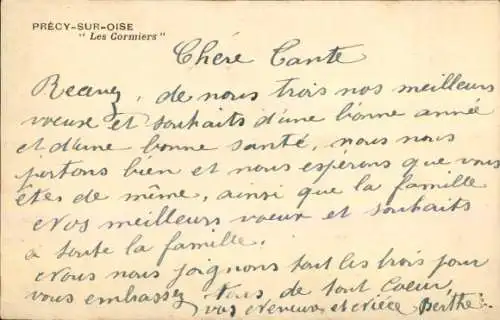 PRÉCY-SUR-OISE
" Les Cormiers "
Chére Tante
Recevez, de nous trois nos meilleurs
voeux et souhaits d'une bonne année
et d'une bonne santé, nous nous
portons bien et nous espérons que vous
êtes de même, ainsi que la famille
Nos meilleurs voeux et souhaits
à toute la famille.
Nous nous joignons tout les trois pour
vous embrasser tous de tout coeur,
vos neveux et nièce Berthe